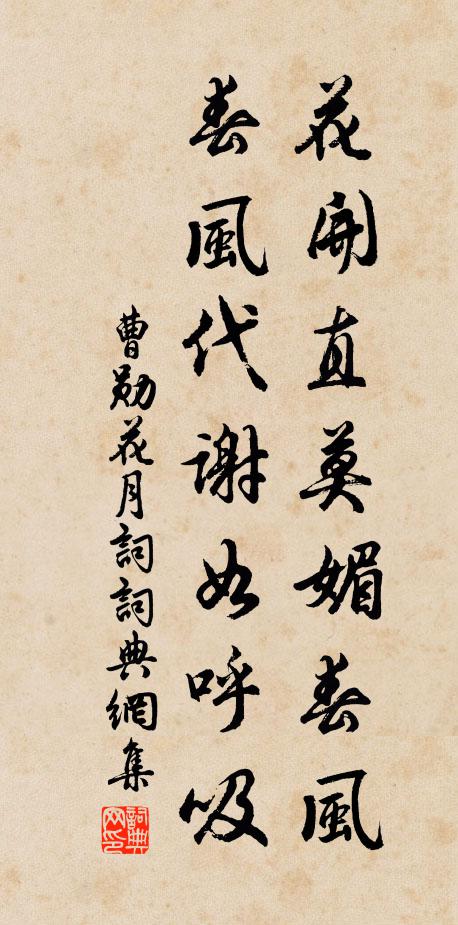 花開直莫媚春風
春風代謝如呼吸
曹勛花月詞詞典網集
詞典网印